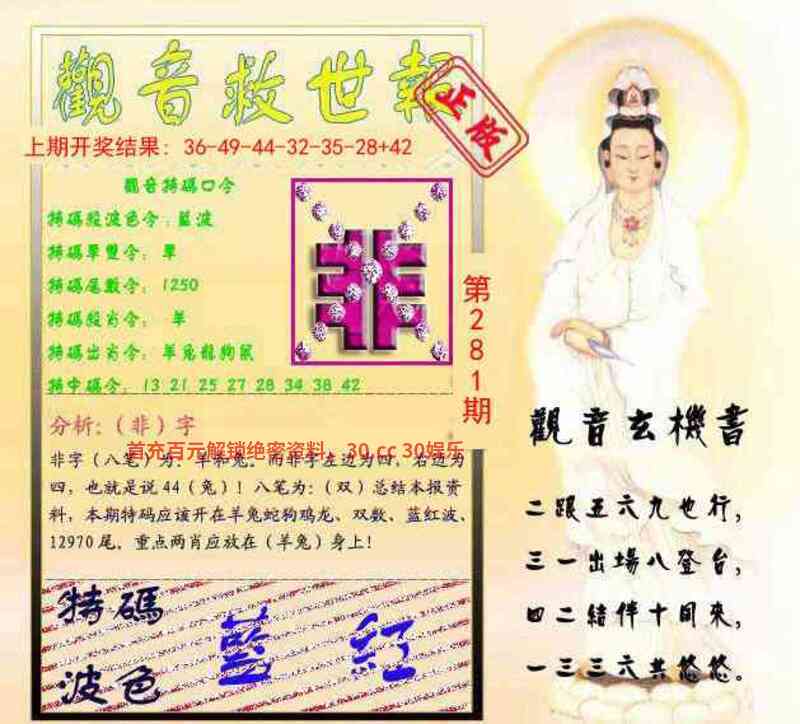 觀音救世報
正版
上期开奖结果：36-49-44-32-35-28+42
觀音特碼口令
特碼段波色令：藍波
特碼單雙令：單
特碼尾數令：1250
特碼殺肖令：羊
特碼出肖令：羊兔龍狗鼠
特中碼令：13 21 25 27 28 34 38 42
非
第281期
分析：（非）字
首充百元解锁绝密资料：30.cc 30娱乐
非字（八笔）为：羊和兔。而非字左边为四，右边为
四，也就是说44（兔）！八笔为：（双）总结本报资
料，本期特码应该开在羊兔蛇狗鸡龙、双数、蓝红波、
12970尾，重点两肖应放在（羊兔）身上！
特碼
波色
藍 紅
觀音玄機書
二跟五六九也行，
三一出場八登台，
四二結伴十回來，
一三三六共悠悠。